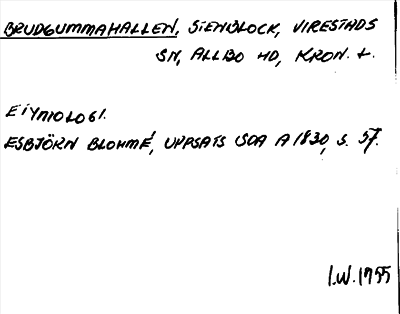 BRUDGUMMAHALLEN, STENBLOCK, VIRESTADS
SN, ALLBO HD, KRON. L.
ETYMOLOGI.
ESBJÖRN BLOHMÉ, UPPSATS I SOA A 1830, S. 57.
I.W. 1955